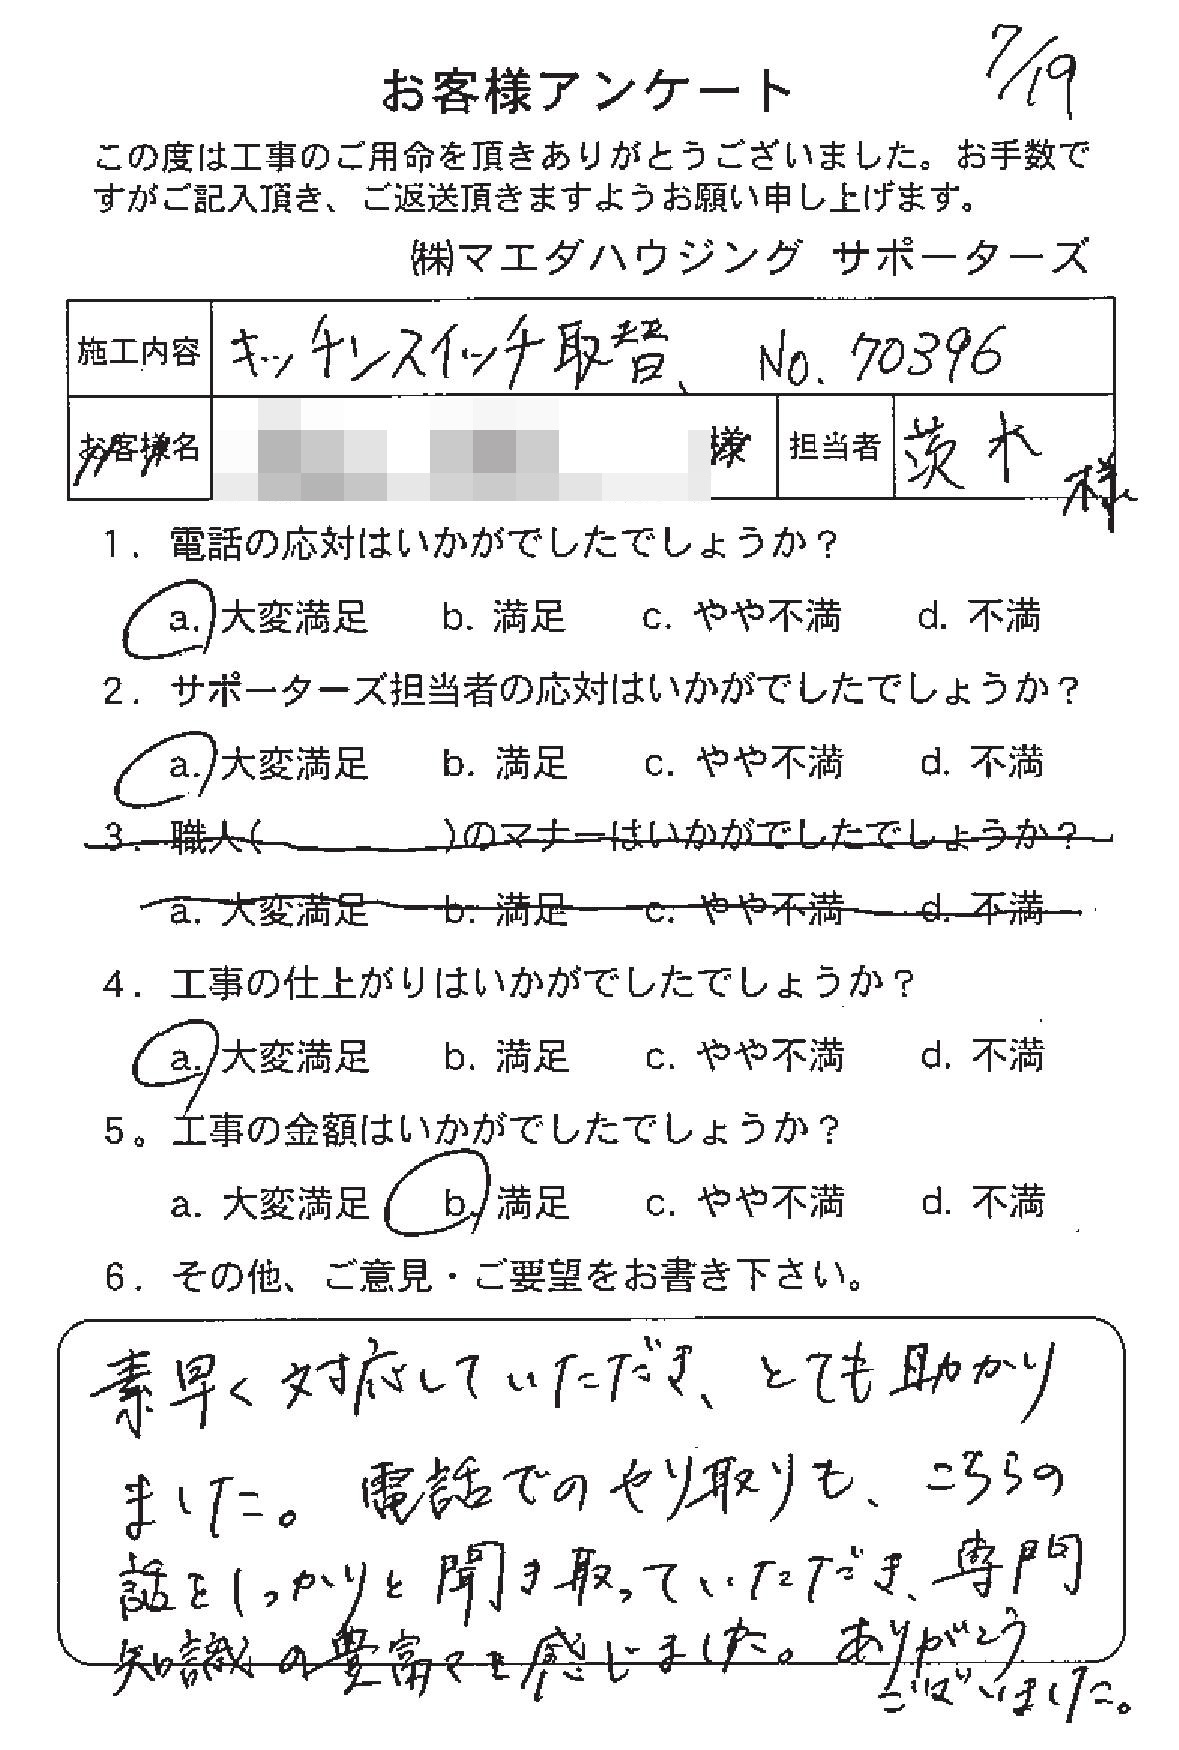 7/19
お客様アンケート
この度は工事のご用命を頂きありがとうございました。お手数で
すがご記入頂き、ご返送頂きますようお願い申し上げます。
㈱マエダハウジング サポーターズ
施工内容 キッチンスイッチ取替、 No. 70396
お客様名 様 担当者 茨木様
1. 電話の応対はいかがでしたでしょうか?
a. 大変満足 b. 満足 c. やや不満 d. 不満
2. サポーターズ担当者の応対はいかがでしたでしょうか?
a. 大変満足 b. 満足 c. やや不満 d. 不満
3. 職人( )のマナーはいかがでしたでしょうか?
a. 大変満足 b. 満足 c. やや不満 d. 不満
4. 工事の仕上がりはいかがでしたでしょうか?
a. 大変満足 b. 満足 c. やや不満 d. 不満
5。工事の金額はいかがでしたでしょうか?
a. 大変満足 b. 満足 c. やや不満 d. 不満
6. その他、ご意見・ご要望をお書き下さい。
素早く対応していただき、とても助かり
ました。電話でのやり取りも、こちらの
話をしっかりと聞き取っていただき、専門
知識の豊富さを感じました。ありがとう
ございました。